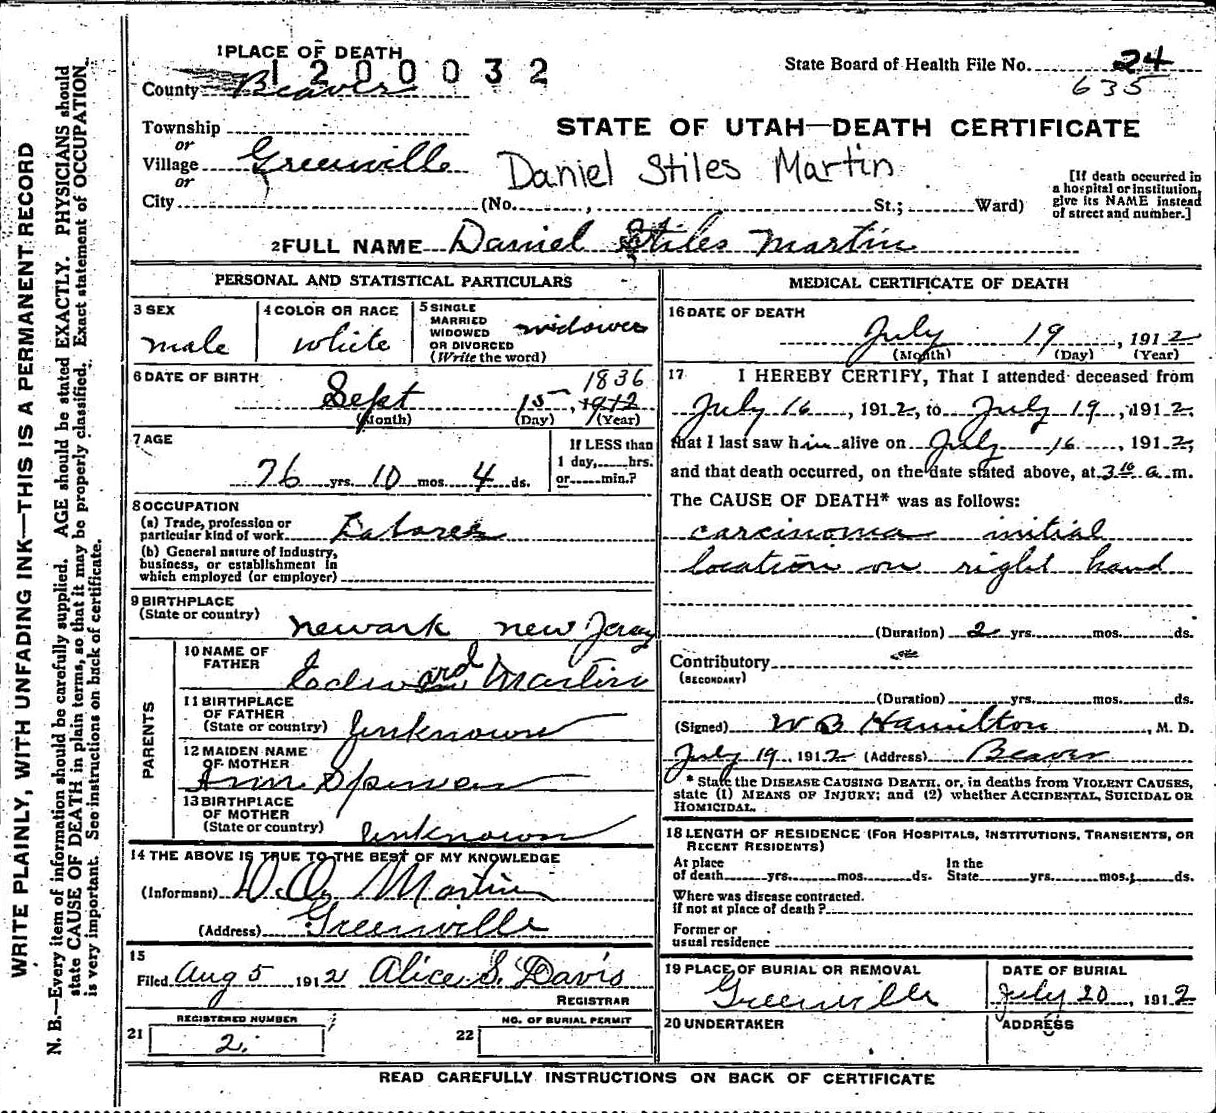 1 PLACE OF DEATH
1200032
State Board of Health File No. 24
635
County Beaver
STATE OF UTAH—DEATH CERTIFICATE
Township
or
Village Greenville
Daniel Stiles Martin
or
City (No. , St.; Ward)
[If death occurred in
a hospital or institution,
give its NAME instead
of street and number.]
2 FULL NAME Daniel Stiles Martin
PERSONAL AND STATISTICAL PARTICULARS
3 SEX
male
4 COLOR OR RACE
white
5 SINGLE
MARRIED
WIDOWED
OR DIVORCED
(Write the word)
widower
6 DATE OF BIRTH
1836
Sept 15, 1912
(Month) (Day) (Year)
7 AGE
76 yrs. 10 mos. 4 ds.
If LESS than
1 day, hrs.
or min.?
8 OCCUPATION
(a) Trade, profession or
particular kind of work Laborer
(b) General nature of Industry,
business, or establishment in
which employed (or employer)
9 BIRTHPLACE
(State or country)
newark new Jersey
PARENTS
10 NAME OF
FATHER
Edward Martin
11 BIRTHPLACE
OF FATHER
(State or country) Unknown
12 MAIDEN NAME
OF MOTHER
Ann
13 BIRTHPLACE
OF MOTHER
(State or country) Unknown
14 THE ABOVE IS TRUE TO THE BEST OF MY KNOWLEDGE
(Informant) Martin
(Address) Greenville
15
Filed Aug 5 1912 Alice S. Davis
REGISTRAR
21 REGISTERED NUMBER
2
22 NO. OF BURIAL PERMIT
MEDICAL CERTIFICATE OF DEATH
16 DATE OF DEATH
July 19, 1912
(Month) (Day) (Year)
17 I HEREBY CERTIFY, That I attended deceased from
July 16, 1912, to July 19, 1912,
that I last saw him alive on July 16, 1912,
and that death occurred, on the date stated above, at 3 10 a.m.
The CAUSE OF DEATH* was as follows:
carcinoma initial
location on right hand
(Duration) 2 yrs. mos. ds.
Contributory
(SECONDARY)
(Duration) yrs. mos. ds.
(Signed) W B Hamilton, M. D.
July 19, 1912 (Address) Beaver
* State the DISEASE CAUSING DEATH, or, in deaths from VIOLENT CAUSES,
state (1) MEANS OF INJURY; and (2) whether ACCIDENTAL, SUICIDAL OR
HOMICIDAL.
18 LENGTH OF RESIDENCE (FOR HOSPITALS, INSTITUTIONS, TRANSIENTS, OR
RECENT RESIDENTS)
At place
of death yrs. mos. ds.
In the
State yrs. mos. ds.
Where was disease contracted.
If not at place of death?
Former or
usual residence
19 PLACE OF BURIAL OR REMOVAL
Greenville
DATE OF BURIAL
July 20, 1912
20 UNDERTAKER
ADDRESS
READ CAREFULLY INSTRUCTIONS ON BACK OF CERTIFICATE
WRITE PLAINLY, WITH UNFADING INK—THIS IS A PERMANENT RECORD
N. B.—Every item of information should be carefully supplied. AGE should be stated EXACTLY. PHYSICIANS should
state CAUSE OF DEATH in plain terms, so that it may be properly classified. Exact statement of OCCUPATION
is very important. See instructions on back of certificate.